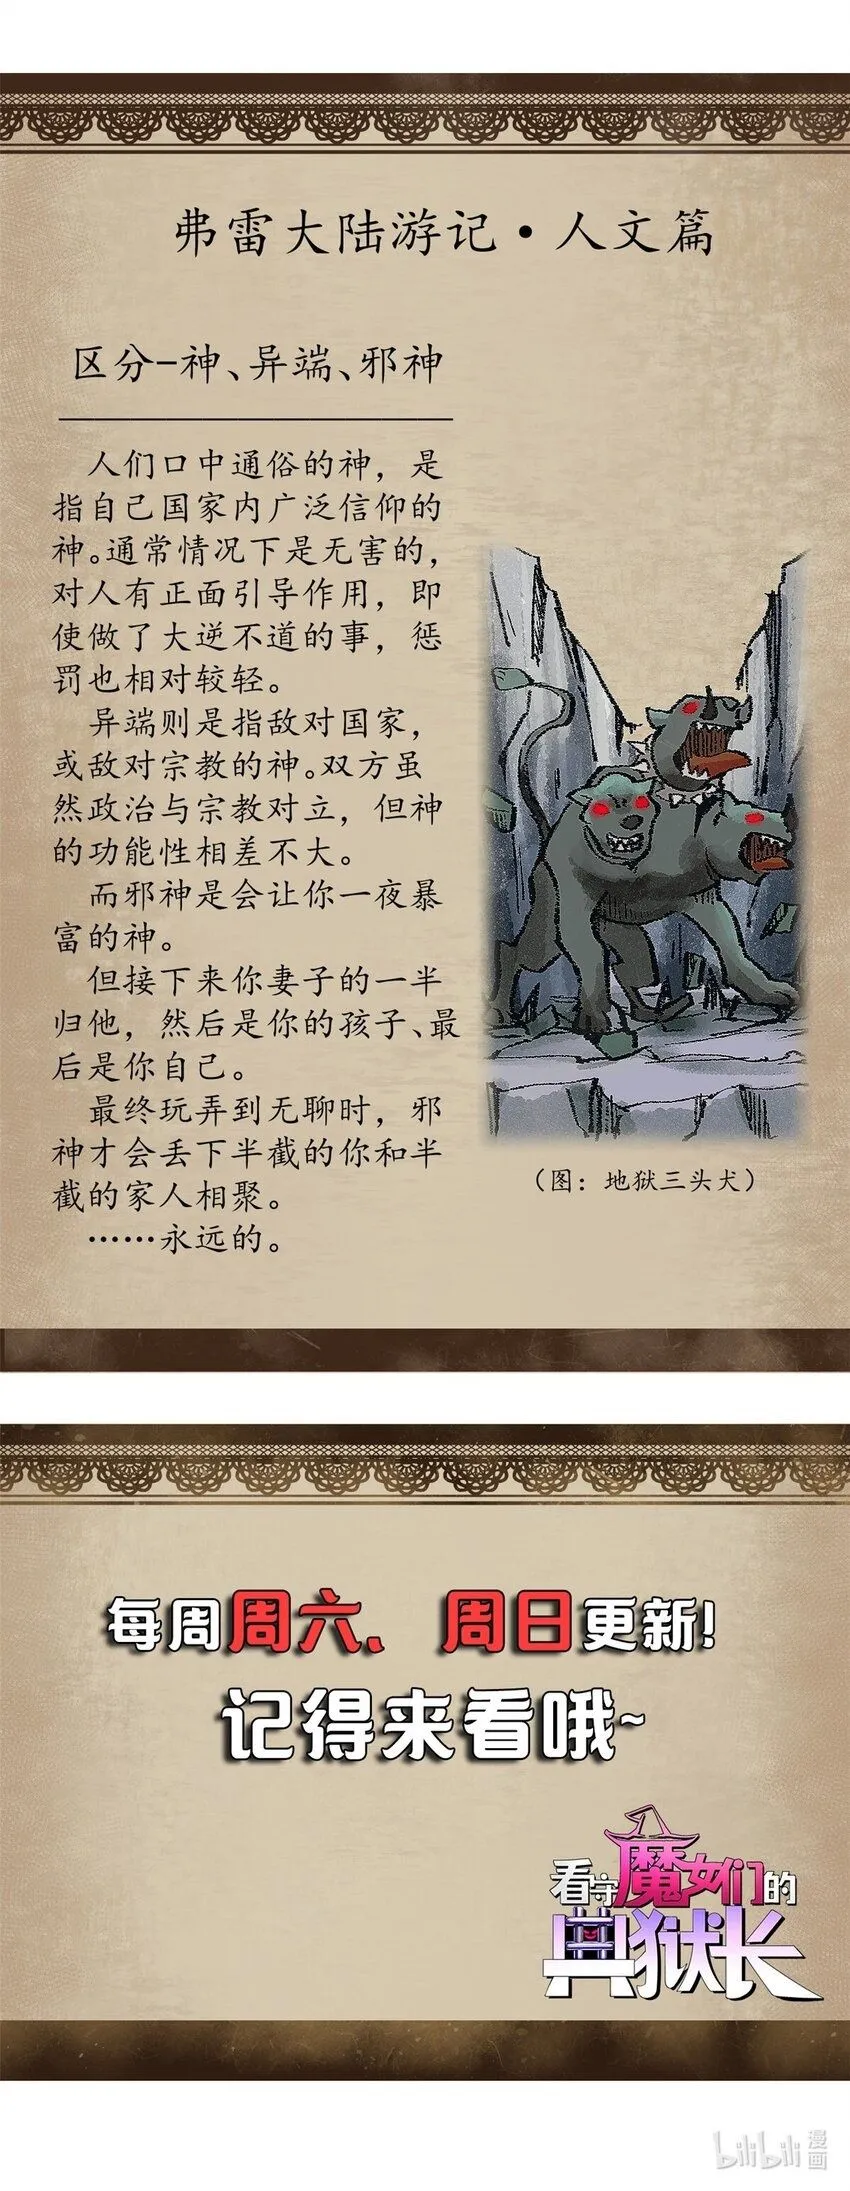 弗雷大陆游记·人文篇
区分-神、异端、邪神
人们口中通俗的神，是
指自己国家内广泛信仰的
神。通常情况下是无害的，
对人有正面引导作用，即
使做了大逆不道的事，惩
罚也相对较轻。
异端则是指敌对国家，
或敌对宗教的神。双方虽
然政治与宗教对立，但神
的功能性相差不大。
而邪神是会让你一夜暴
富的神。
但接下来你妻子的一半
归他，然后是你的孩子、最
后是你自己。
最终玩弄到无聊时，邪
神才会丢下半截的你和半
截的家人相聚。
……永远的。
（图：地狱三头犬）
每周周六、周日更新！
记得来看哦~
看守魔女们的
典狱长
bilibili 漫画